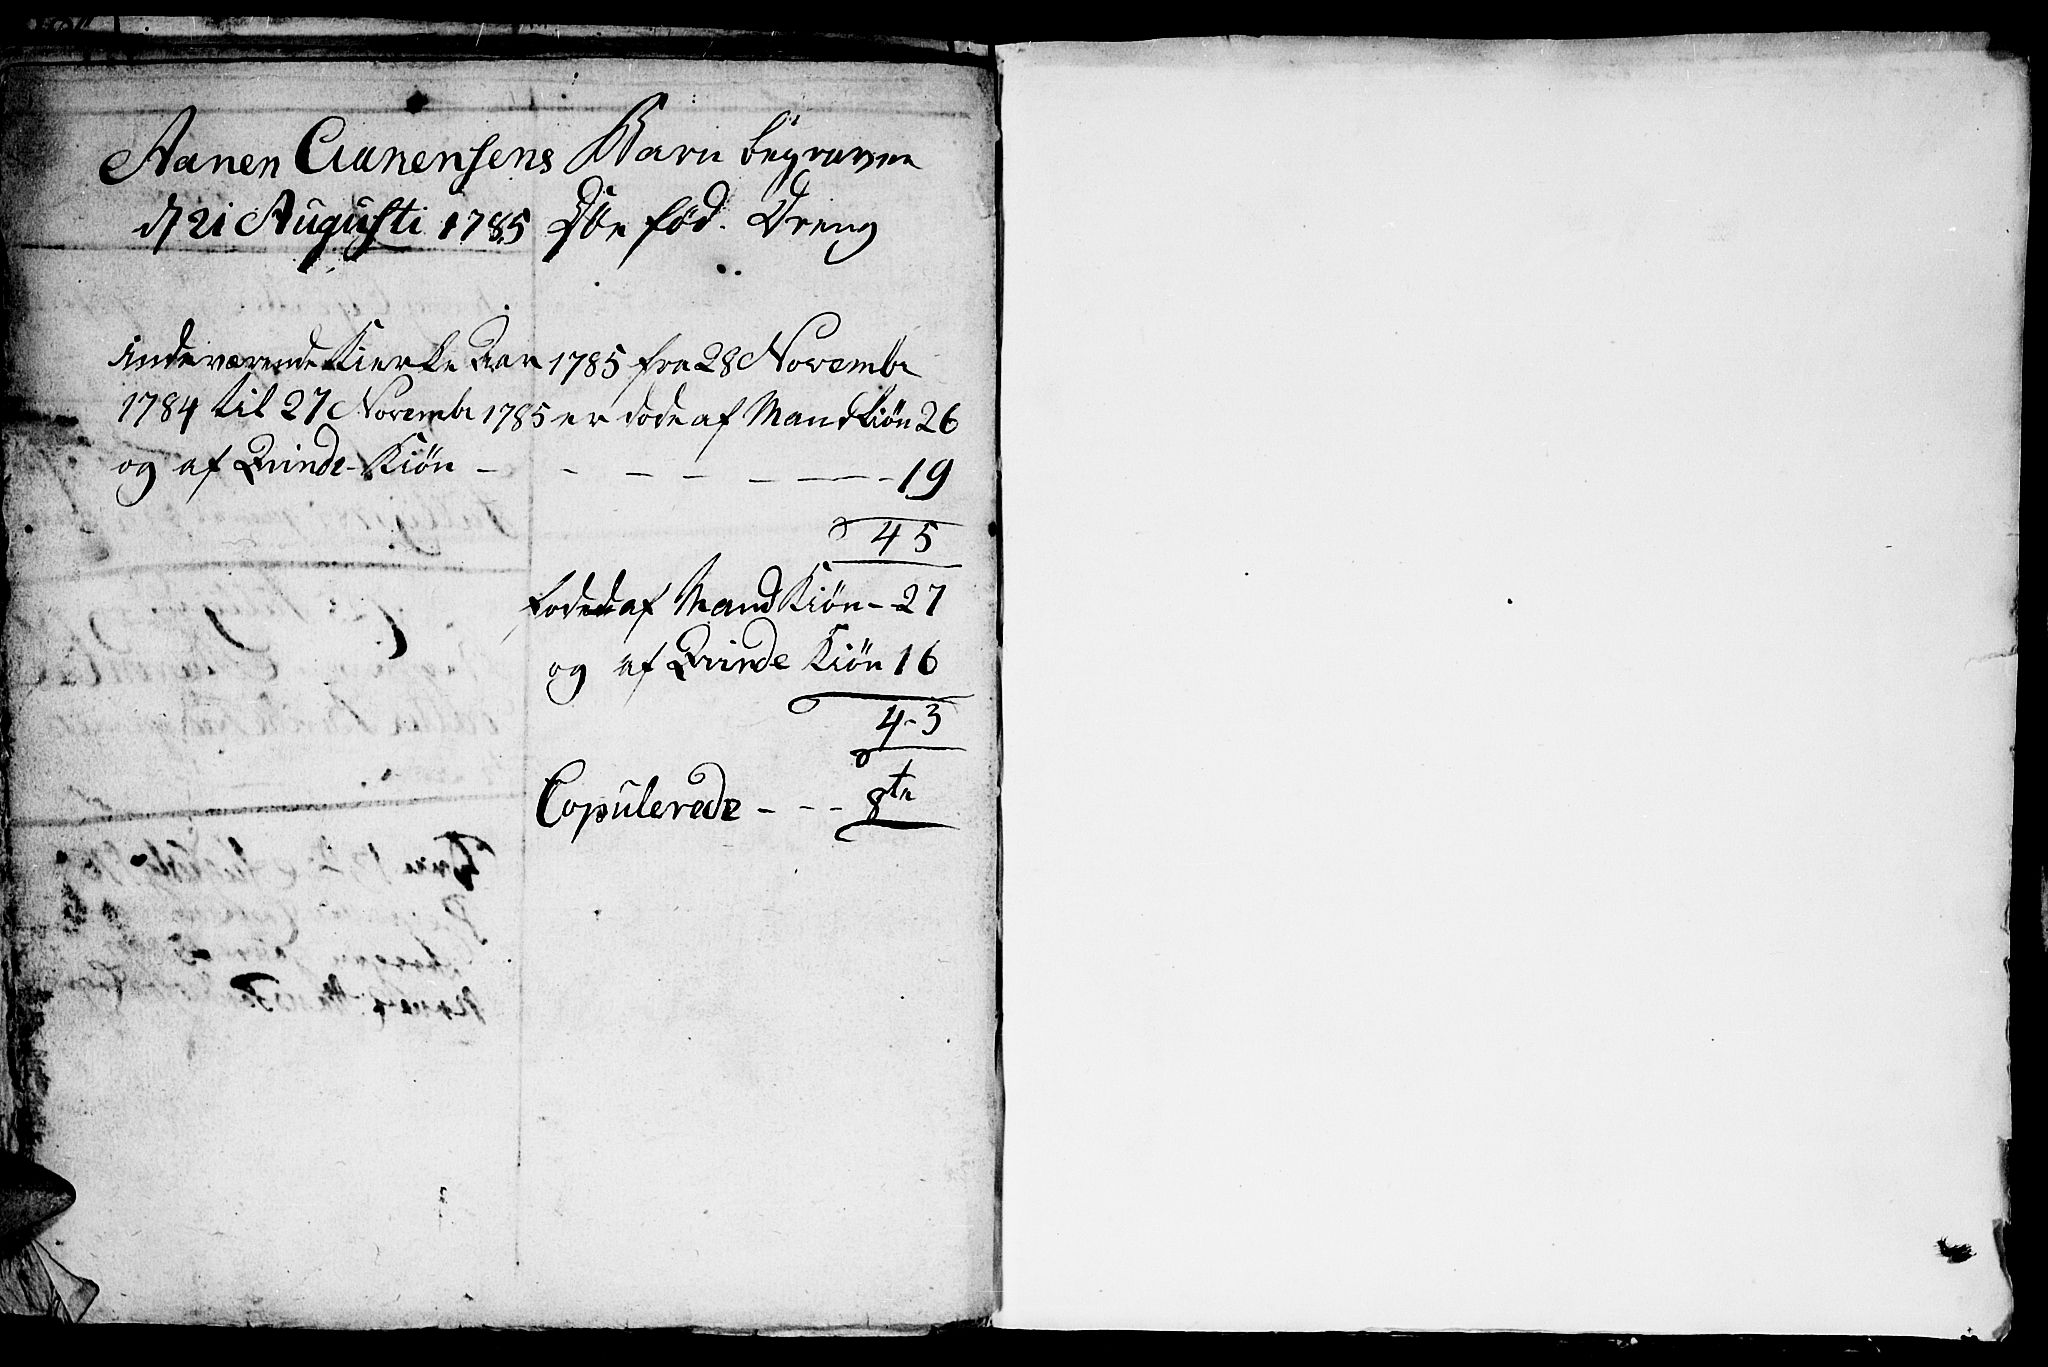 Aanen Aanensens Barn begraven
d 21 Augusti 1785 Døe fød. Dreng
Indeværende Kierke Aar 1785 fra 28 Novembr
1784 til 27 Novembr 1785 er døde af Mandkiön 26
og af Qvinde-Kiön - - - - - - - 19
45
födde af Mand Kiön - 27
og af Qvinde Kiön 16
43
Copulerede - - - 8te